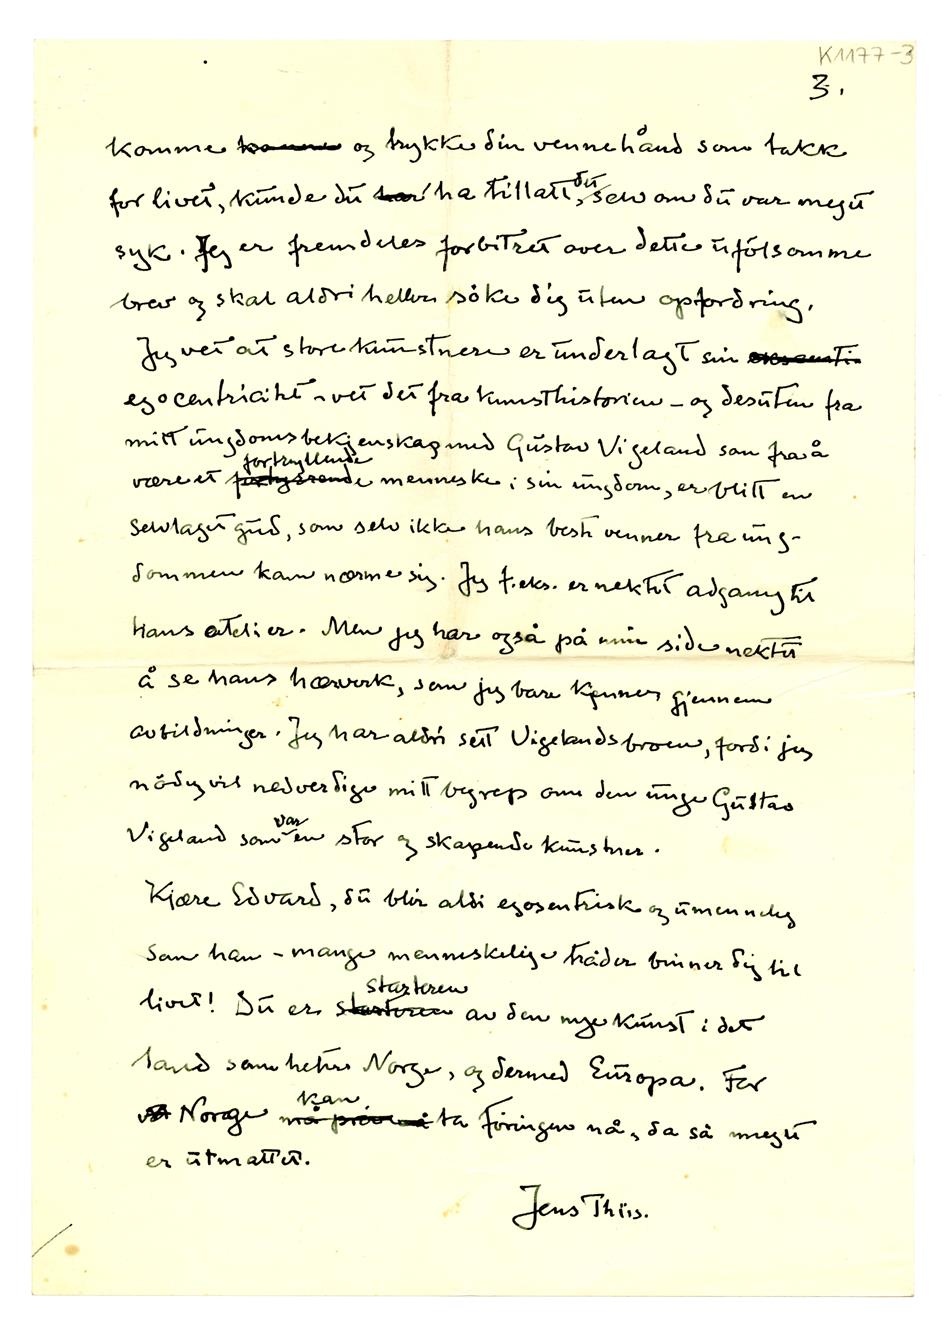 K1177-3
3.
komme komme og trykke din vennehånd som takk
for livet, kunde du har ha tillatt, du selv om du var meget
syk. Jeg er fremdeles forbitret over dette ufölsomme
brev og skal aldri heller söke dig uten opfordring.
Jeg vet at store kunstnere er underlagt sin
egocentricitet – vet det fra kunsthistorien – og desuten fra
mitt ungdomsbekjenskap med Gustav Vigeland som fra å
fortryllende
være et menneske i sin ungdom, er blitt en
selvlaget gud, som selv ikke hans beste venner fra ung-
dommen kan nærme sig. Jeg f.eks. er nektet adgang til
hans atelier. Men jeg har også på min side nektet
å se hans hærverk, som jeg bare kjenner gjennem
avbildninger. Jeg har aldri sett Vigelandsbroen, fordi jeg
nödig vil nedverdige mitt begrep om den unge Gustav
Vigeland som var en stor og skapende kunstner.
Kjære Edvard, du blir aldi egosentrisk og umenneelig
som han – mange menneskelige tråder binner dig til
starteren
livet! Du er starteren av den nye kunst i det
land som heter Norge, og dermed Europa. For
kan
Norge må pröve å ta föringen nå, da så meget
er utmattet.
Jens Thiis.